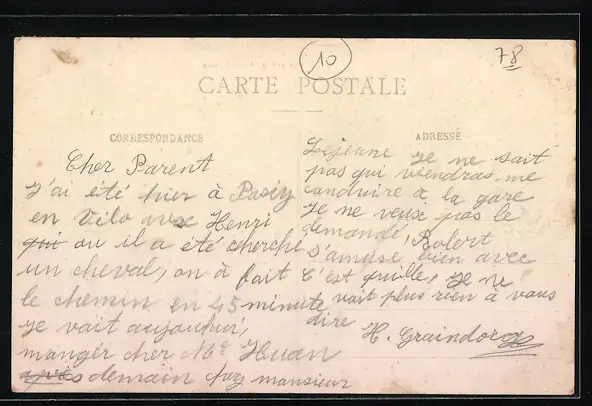 10
78
CARTE POSTALE
CORRESPONDANCE
Cher Parent
J'ai été hier à Pasiy
en Vélo avec Henri
qui ou il a été cherché
un cheval, on à fait
le chemin en 45 minute
Je vait aujourhui,
manger cher Me Huan
après demain chez mansieur
ADRESSE
Lejeune Je ne sait
pas qui viendras me
conduire à la gare
Je ne veux pas le
demandé, Robert
s'amuse bien avec
c'est quille, Je ne
vait plus rien à vous
dire
H. Graindorge